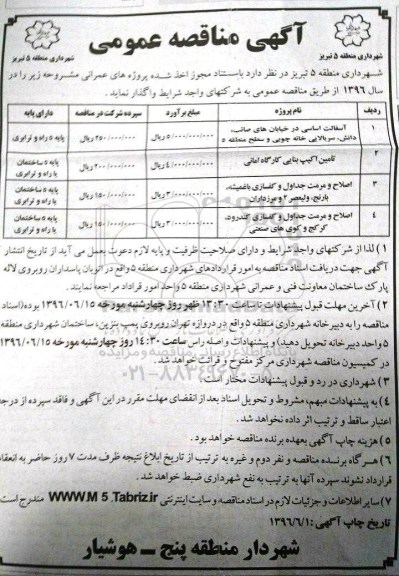 آگهی مناقصه عمومی
شهرداری منطقه ۵ تبریز
شهرداری منطقه ۵ تبریز
شهرداری منطقه ۵ تبریز در نظر دارد باستناد مجوز اخذ شده پروژه های عمرانی مشروحه زیر را در
سال ۱۳۹۶ از طریق مناقصه عمومی به شرکتهای واجد شرایط واگذار نماید.
ردیف نام پروژه مبلغ برآورد سپرده شرکت در مناقصه دارای پایه
۱ آسفالت اساسی در خیابان های صائب، دانش، سربالایی خانه چوبی و سطح منطقه ۵ ۵/۰۰۰/۰۰۰/۰۰۰ ریال ۲۵۰/۰۰۰/۰۰۰ ریال پایه ۵ راه و ترابری
۲ تامین اکیپ بنایی کارگاه امانی ۴/۰۰۰/۰۰۰/۰۰۰ ریال ۲۰۰/۰۰۰/۰۰۰ ریال پایه ۵ ساختمان یا راه و ترابری
۳ اصلاح و مرمت جداول و کفسازی باغمیشه، بارنج، ولیعصر ۲ و مرزداران ۳/۰۰۰/۰۰۰/۰۰۰ ریال ۱۵۰/۰۰۰/۰۰۰ ریال پایه ۵ ساختمان یا راه و ترابری
۴ اصلاح و مرمت جداول و کفسازی کندرود، کرکج و کوی های صنعتی ۳/۰۰۰/۰۰۰/۰۰۰ ریال ۱۵۰/۰۰۰/۰۰۰ ریال پایه ۵ ساختمان یا راه و ترابری
۱) لذا از شرکتهای واجد شرایط و دارای صلاحیت ظرفیت و پایه لازم دعوت بعمل می آید از تاریخ انتشار
آگهی جهت دریافت اسناد مناقصه به امور قراردادهای شهرداری منطقه ۵ واقع در اتوبان پاسداران روبروی لاله
پارک ساختمان معاونت فنی و عمرانی شهرداری منطقه ۵ واحد امور قرارداد مراجعه نمایند.
۲) آخرین مهلت قبول پیشنهادات تا ساعت ۱۳:۳۰ ظهر روز چهارشنبه مورخه ۱۳۹۶/۰۶/۱۵ بوده (اسناد
مناقصه را به دبیرخانه شهرداری منطقه ۵ واقع در دروازه تهران روبروی پمپ بنزین، ساختمان شهرداری منطقه
۵ واحد دبیرخانه تحویل دهید) و پیشنهادات واصله راس ساعت ۱۴:۳۰ روز چهارشنبه مورخه ۱۳۹۶/۰۶/۱۵
در کمیسیون مناقصه شهرداری مرکز مفتوح و قرائت خواهد شد.
۳) شهرداری در رد و قبول پیشنهادات مختار است.
۴) به پیشنهادات مبهم، مشروط و تحویل اسناد بعد از انقضای مهلت مقرر در این آگهی و فاقد سپرده از درجه
اعتبار ساقط و ترتیب اثر داده نخواهد شد.
۵) هزینه چاپ آگهی بعهده برنده مناقصه خواهد بود.
۶) هرگاه برنده مناقصه و نفر دوم و غیره به ترتیب از تاریخ ابلاغ نتیجه ظرف مدت ۷ روز حاضر به انعقاد
قرارداد نشوند سپرده آنها به ترتیب به نفع شهرداری ضبط خواهد شد.
۷) سایر اطلاعات و جزئیات لازم در اسناد مناقصه و سایت اینترنتی WWW.M 5.Tabriz.ir مندرج است.
تاریخ چاپ آگهی: ۱۳۹۶/۶/۱
شهردار منطقه پنج ـ هوشیار